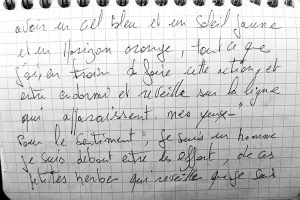 avoir un ciel bleu et un Soleil jaune
et un Horizon orange, tout ce que
j'ai en train de faire cette action, et
entre endormi et réveillé sur la ligne
qui apparaissent mes yeux-"
Pour le sentiment, je suis un homme
je suis debout entre les effort, de ces
petites herbes qui réveille que je suis